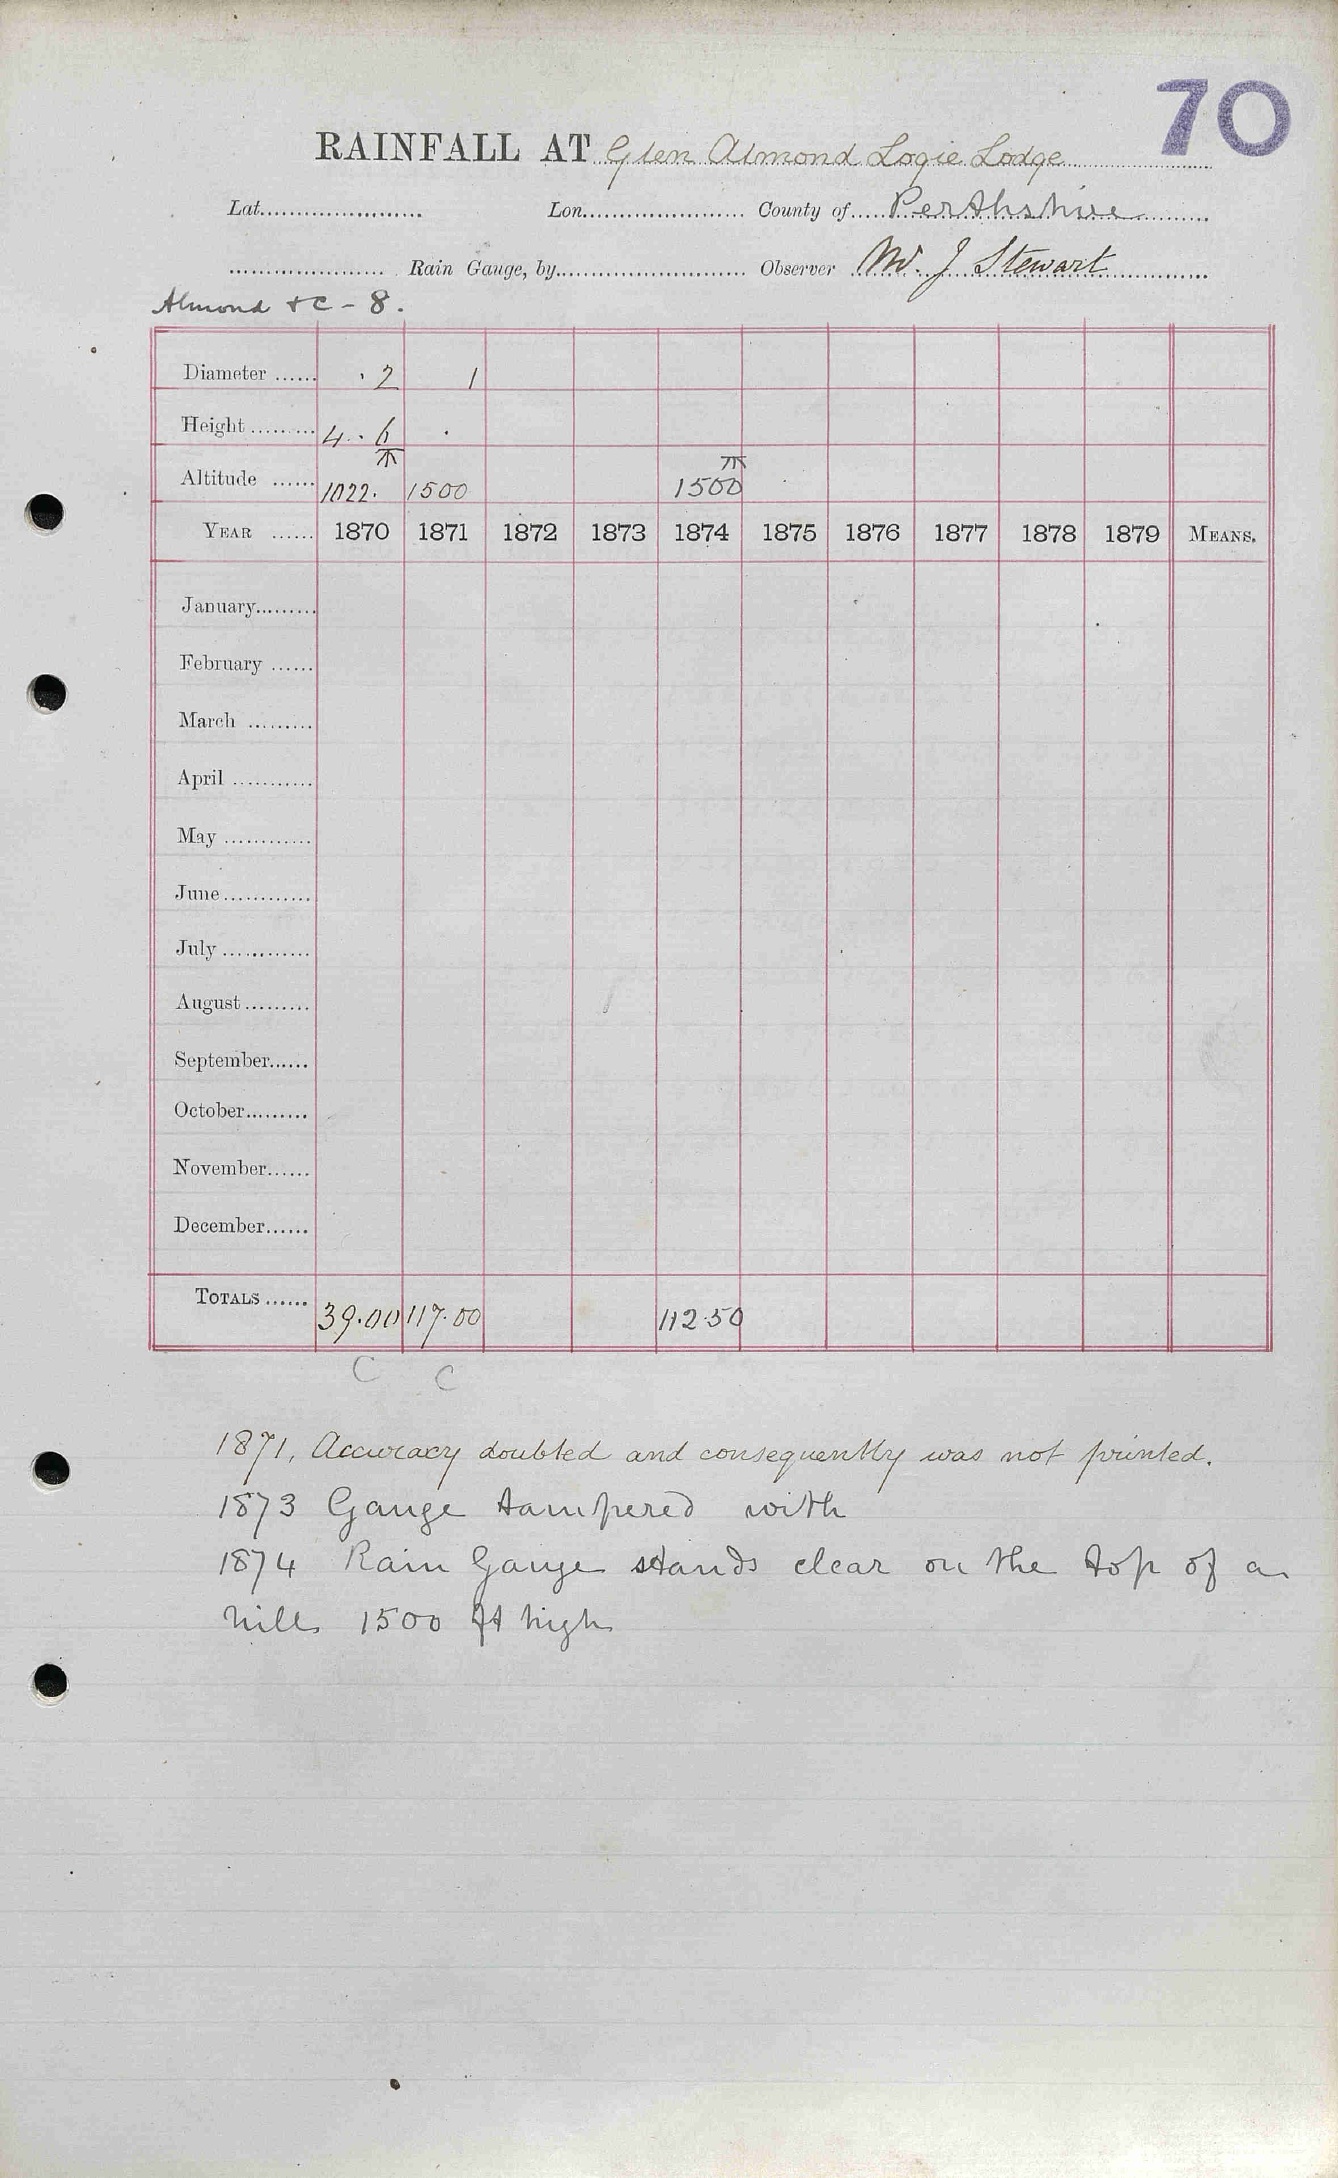 70
RAINFALL AT Glen Almond Logie Lodge
Lat...................... Lon...................... County of Perthshire
..................... Rain Gauge, by......................... Observer Mr. J Stewart
Almond &C - 8.
Diameter ...... . 2 1
Height ......... 4 . 6 .
Altitude ...... 1022. 1500 1500
YEAR ...... 1870 1871 1872 1873 1874 1875 1876 1877 1878 1879 MEANS.
January.........
February ......
March .........
April ...........
May ............
June ............
July ............
August .........
September......
October.........
November......
December......
TOTALS ...... 39.00 117.00 112.50
C C
1871, Accuracy doubted and consequently was not printed.
1873 Gauge tampered with
1874 Rain Gauge stands clear on the top of a
hill 1500 ft high